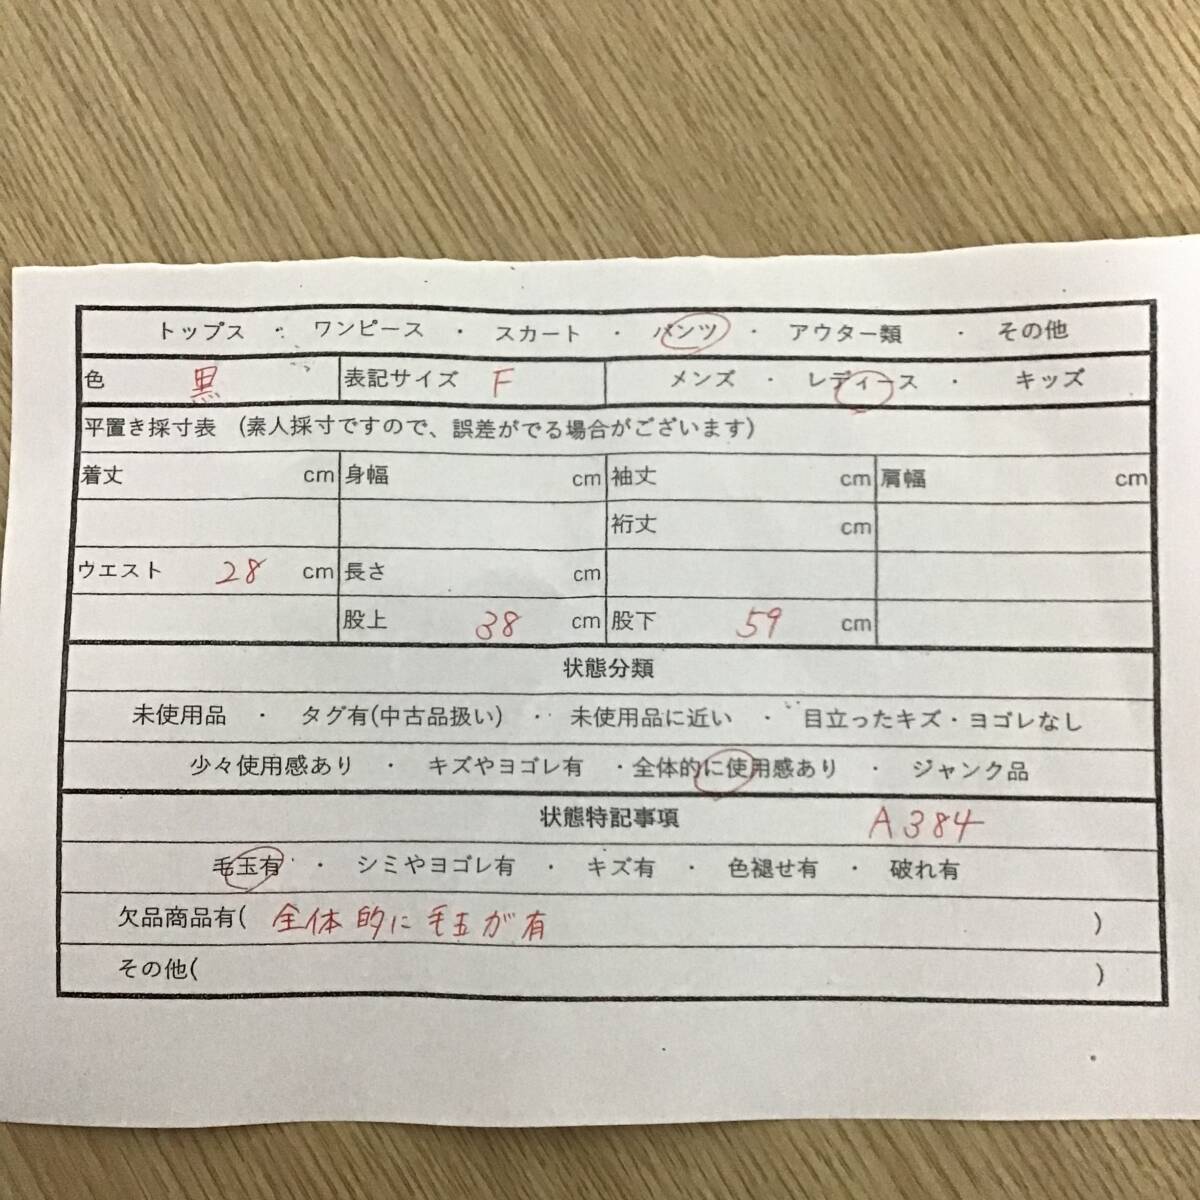 トップス ・ ワンピース ・ スカート ・ パンツ ・ アウター類 ・ その他
色 黒 表記サイズ F メンズ ・ レディース ・ キッズ
平置き採寸表 (素人採寸ですので、誤差がでる場合がございます)
着丈 cm 身幅 cm 袖丈 cm 肩幅 cm
裄丈 cm
ウエスト 28 cm 長さ cm
股上 38 cm 股下 59 cm
状態分類
未使用品 ・ タグ有(中古品扱い) ・ 未使用品に近い ・ 目立ったキズ・ヨゴレなし
少々使用感あり ・ キズやヨゴレ有 ・全体的に使用感あり ・ ジャンク品
状態特記事項 A384
毛玉有 ・ シミやヨゴレ有 ・ キズ有 ・ 色褪せ有 ・ 破れ有
欠品商品有( 全体的に毛玉が有 )
その他( )